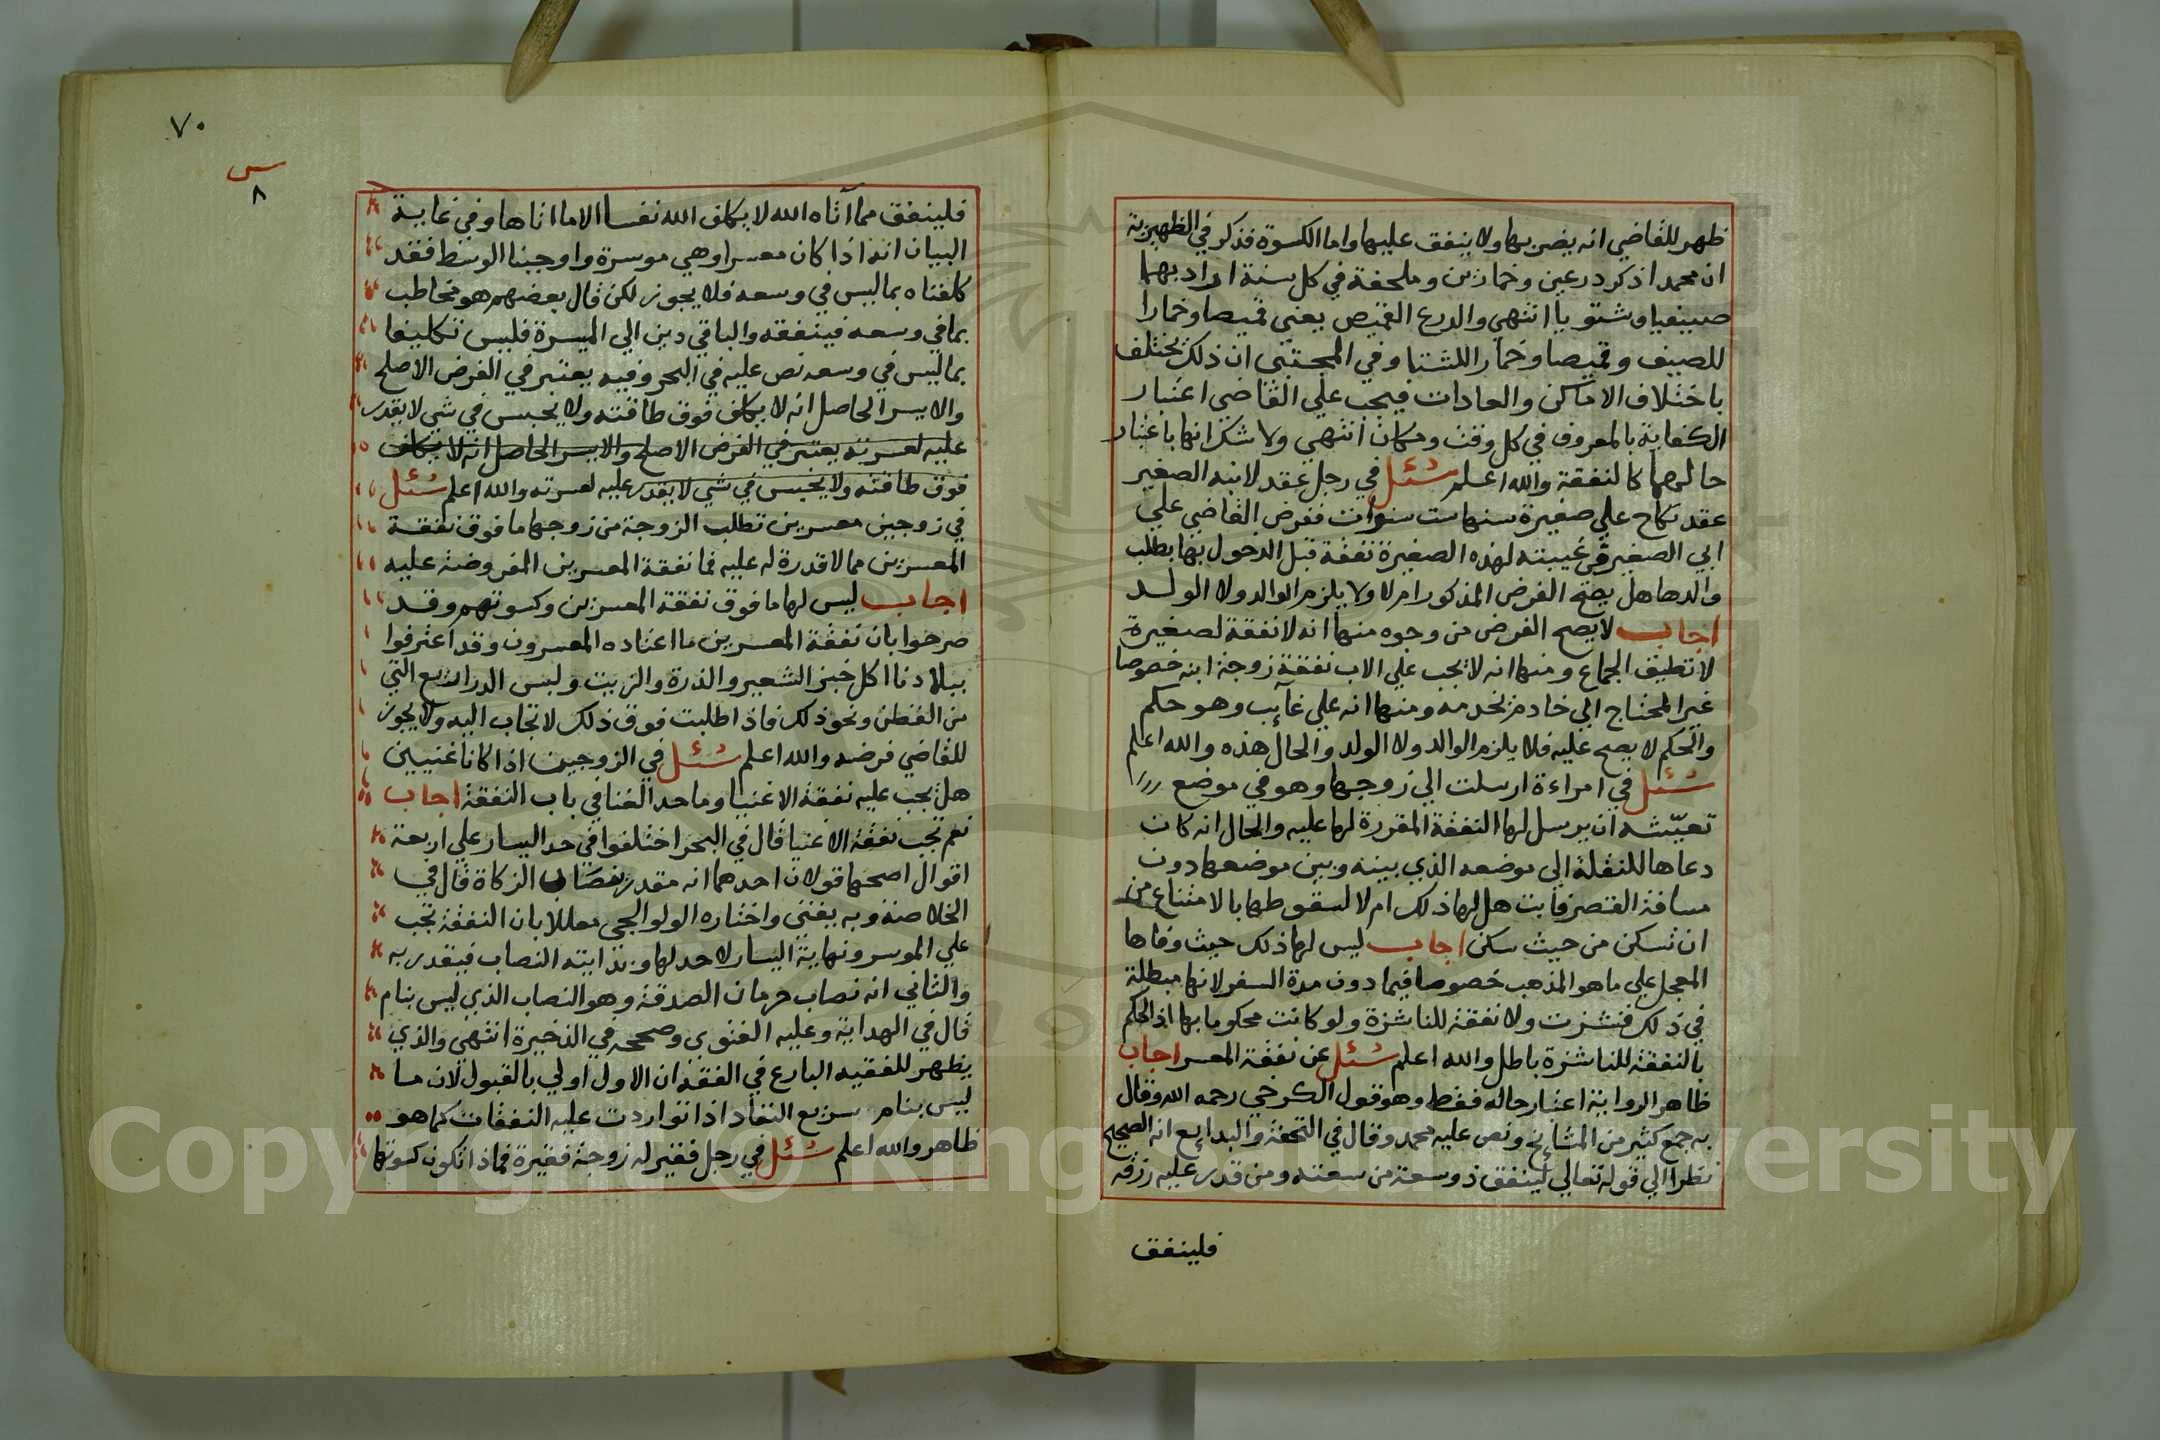 ظهر للقاضي انه يضربها ولا ينفق عليها واما الكسوة فذكر في الظهيرية
ان محمد اذكر درعين وخمارين وملحفة في كل سنة اراد بهما
صيفيا وشتويا انتهي والدرع القميص يعني قميصا وخمارا
للصيف وقميصا وخمارا للشتا وفي المجتبي ان ذلك يختلف
باختلاف الاماكن والعادات فيجب علي القاضي اعتبار
الكفاية بالمعروف في كل وقت ومكان انتهي ولا شك انها باعتبار
حالهما كالنفقة والله اعلم سئل في رجل عقد لابنه الصغير
عقد نكاح علي صغيرة سنها ست سنوات ففرض القاضي علي
ابي الصغير في غيبته لهذه الصغيرة نفقة قبل الدخول بها بطلب
والدها هل يصح الفرض المذكور ام لا ولا يلزم الوالد ولا الولد
اجاب لا يصح الفرض من وجوه منها انه لا نفقة لصغيرة
لا تطيق الجماع ومنها انه لا تجب علي الاب نفقة زوجة ابنه خصوصا
غير المحتاج الي خادم يخدمه ومنها انه علي غائب وهو حكم
والحكم لا يصح عليه فلا يلزم الوالد ولا الولد والحال هذه والله اعلم
سئل في امراءة ارسلت الي زوجها وهو في موضع
تعيشه ان يرسل لها النفقة المقررة لها عليه والحال انه كان
دعاها للنقلة الي موضعه الذي بينه وبين موضعها دون
مسافة القصر فابت هل لها ذلك ام لا لسقوطها بالامتناع من
ان تسكن من حيث سكن اجاب ليس لها ذلك حيث وفاها
المعجل علي ما هو المذهب خصوصا فيما دون مدة السفر لانها مبطلة
في ذلك فنشزت ولا نفقة للناشزة ولو كانت محكوما بها اذ الحكم
بالنفقة للناشزة باطل والله اعلم سئل عن نفقة المعسر اجاب
ظاهر الرواية اعتبار حاله فقط وهو قول الكرخي رحمه الله وقال
به جمع كثير من المشائخ ونص عليه محمد وقال في التحفة والبدايع انه الصحيح
نظرا الي قوله تعالي لينفق ذو سعة من سعته ومن قدر عليه رزقه
فلينفق
٧٠
س
٨
فلينفق مما آتاه الله لا يكلف الله نفسا الا ما اتاها وفي غاية
البيان انه اذا كان معسرا وهي موسرة واوجبنا الوسط فقد
كلفناه بما ليس في وسعه فلا يجوز لكن قال بعضهم هو مخاطب
بما في وسعه فينفقه والباقي دين الي الميسرة فليس تكليفا
بما ليس في وسعه نص عليه في البحر وفيه يعتبر في الفرض الاصلح
والايسر الحاصل انه لا يكلف فوق طاقته ولا يحبس في شي لا يقدر
عليه لعسرته يعتبر في الفرض الاصلح والايسر الحاصل انه لا يكلف
فوق طاقته ولا يحبس في شي لا يقدر عليه لعسرته والله اعلم سئل
في زوجين معسرين تطلب الزوجة من زوجها ما فوق نفقة
المعسرين مما لا قدرة له عليه فما نفقة المعسرين المفروضة عليه
اجاب ليس لها ما فوق نفقة المعسرين وكسوتهم وقد
صرحوا بان نفقة المعسرين ما اعتاده المعسرون وقد اعترفوا
ببلادنا اكل خبز الشعير والذرة والزيت ولبس الدراريع التي
من القطن ونحو ذلك فاذا طلبت فوق ذلك لا تجاب اليه ولا يجوز
للقاضي فرضه والله اعلم سئل في الزوجين اذا كانا غنيين
هل تجب عليه نفقة الاغنيا وما حد الغنا في باب النفقة اجاب
نعم تجب نفقة الاغنيا قال في البحر اختلفوا في حد اليسار علي اربعة
اقوال اصحها قولان احدهما انه مقدر بنصاب الزكاة قال في
الخلاصة وبه يفتي واختاره الولوالجي معللا بان النفقة تجب
علي الموسر ونهاية اليسار لا حد لها وبدايته النصاب فيقدر به
والثاني انه نصاب حرمان الصدقة وهو النصاب الذي ليس بنام
قال في الهداية وعليه الفتوي وصححه في الذخيرة انتهي والذي
يظهر للفقيه البارع في الفقه ان الاول اولي بالقبول لان ما
ليس بنام سريع النفاد اذا تواردت عليه النفقات كما هو
ظاهر والله اعلم سئل في رجل فقير له زوجة فقيرة فماذا تكون كسوتها
Copyright © King Saud University